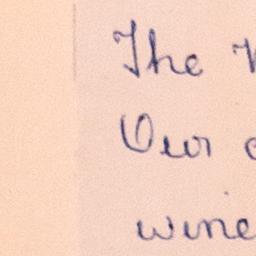 The
Our
wine